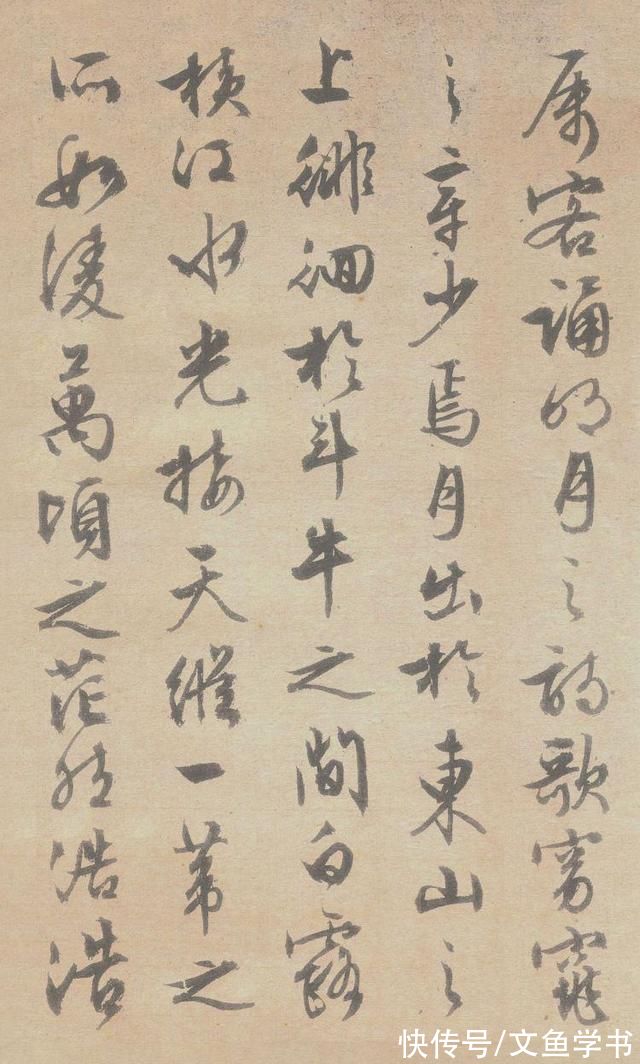 属客誦明月之詩歌窈窕
之章少焉月出於東山之
上徘徊於斗牛之間白露
横江水光接天縱一葦之
所如淩萬頃之茫然浩浩
快传号/文鱼学书